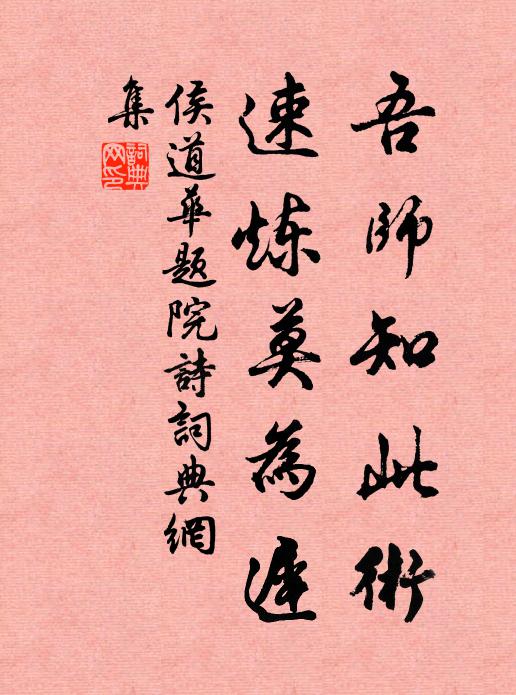 吾師知此術
速炼莫為遲
侯道華題院詩詞典網
集
詞典網印